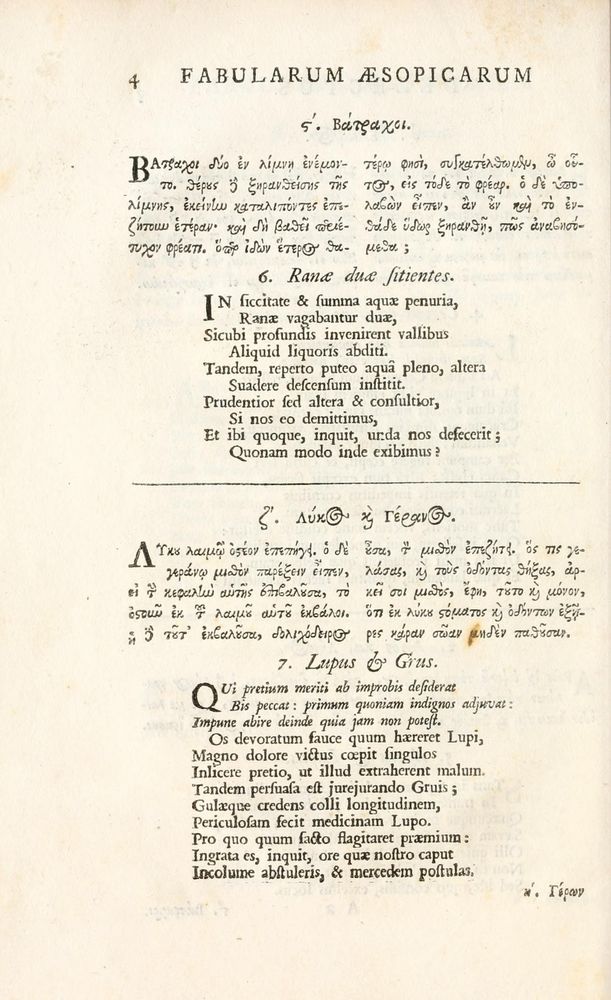 4 FABULARUM ÆSOPICARUM
ϛ΄. Βάτραχοι.
ΒΑτραχοι δύο ἐν λίμνῃ ἐνέμον-
το. θέρους δὲ ξηρανθείσης τῆς
λίμνης, ἐκείνην καταλιπόντες ἐπε-
ζήτουν ἑτέραν· καὶ δὴ βαθεῖ περιέ-
τυχον φρέατι. ὅπερ ἰδὼν ἕτερος θα-
τέρῳ φησὶ, συγκατέλθωμεν, ὦ οὗ-
τος, εἰς τόδε τὸ φρέαρ. ὁ δὲ ὑπο-
λαβὼν εἶπεν, ἂν οὖν καὶ τὸ ἐν-
θάδε ὕδωρ ξηρανθῇ, πῶς ἀναβησό-
μεθα ;
6. Ranæ duæ ſitientes.
IN ſiccitate & ſumma aquæ penuria,
Ranæ vagabantur duæ,
Sicubi profundis invenirent vallibus
Aliquid liquoris abditi.
Tandem, reperto puteo aquâ pleno, altera
Suadere deſcenſum inſtitit.
Prudentior ſed altera & conſultior,
Si nos eo demittimus,
Et ibi quoque, inquit, unda nos defecerit ;
Quonam modo inde exibimus ?
ζ΄. Λύκος καὶ Γέρανος.
ΛΥκου λαιμῷ ὀστέον ἐπεπήγει. ὁ δὲ
γεράνῳ μισθὸν παρέξειν εἶπεν,
εἰ τὴν κεφαλὴν αὐτῆς ἐπιβαλοῦσα, τὸ
ὀστοῦν ἐκ τοῦ λαιμοῦ αὐτοῦ ἐκβάλοι.
ἡ δὲ τοῦτ᾽ ἐκβαλοῦσα, δολιχόδειρος
οὖσα, τὸν μισθὸν ἐπεζήτει. ὅς τις γε-
λάσας, καὶ τοὺς ὀδόντας θήξας, ἀρ-
κεῖ σοι μισθὸς, ἔφη, τοῦτο καὶ μόνον,
ὅτι ἐκ λύκου στόματος καὶ ὀδόντων ἐξῇ-
ρες κάραν σῶαν μηδὲν παθοῦσαν.
7. Lupus & Grus.
QUi pretium meriti ab improbis deſiderat
Bis peccat : primum quoniam indignos adjuvat :
Impune abire deinde quia jam non poteſt.
Os devoratum fauce quum hæreret Lupi,
Magno dolore victus cœpit ſingulos
Inlicere pretio, ut illud extraherent malum.
Tandem perſuaſa eſt jurejurando Gruis ;
Gulæque credens colli longitudinem,
Periculoſam fecit medicinam Lupo.
Pro quo quum facto flagitaret præmium :
Ingrata es, inquit, ore quæ noſtro caput
Incolume abſtuleris, & mercedem poſtulas.
η΄. Γέρων